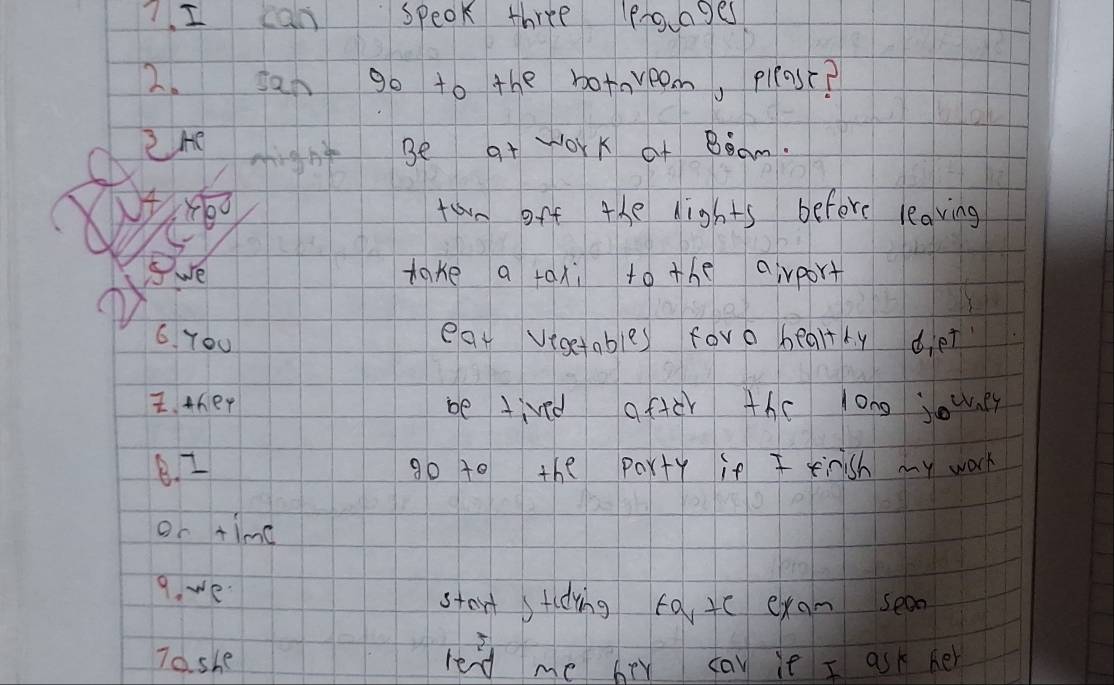 1. I can speak three lenguages
2. can go to the bathroom, please?
3 He might Be at work at 8:am.
4 you turn off the lights before leaving
5 we take a taxi to the airport
6. You eat vegetables for a healthy diet
7. they be tired after the long journey
8. I go to the party if I finish my work
on time
9. we start studying the exam soon
10 she lend me her car if I ask her